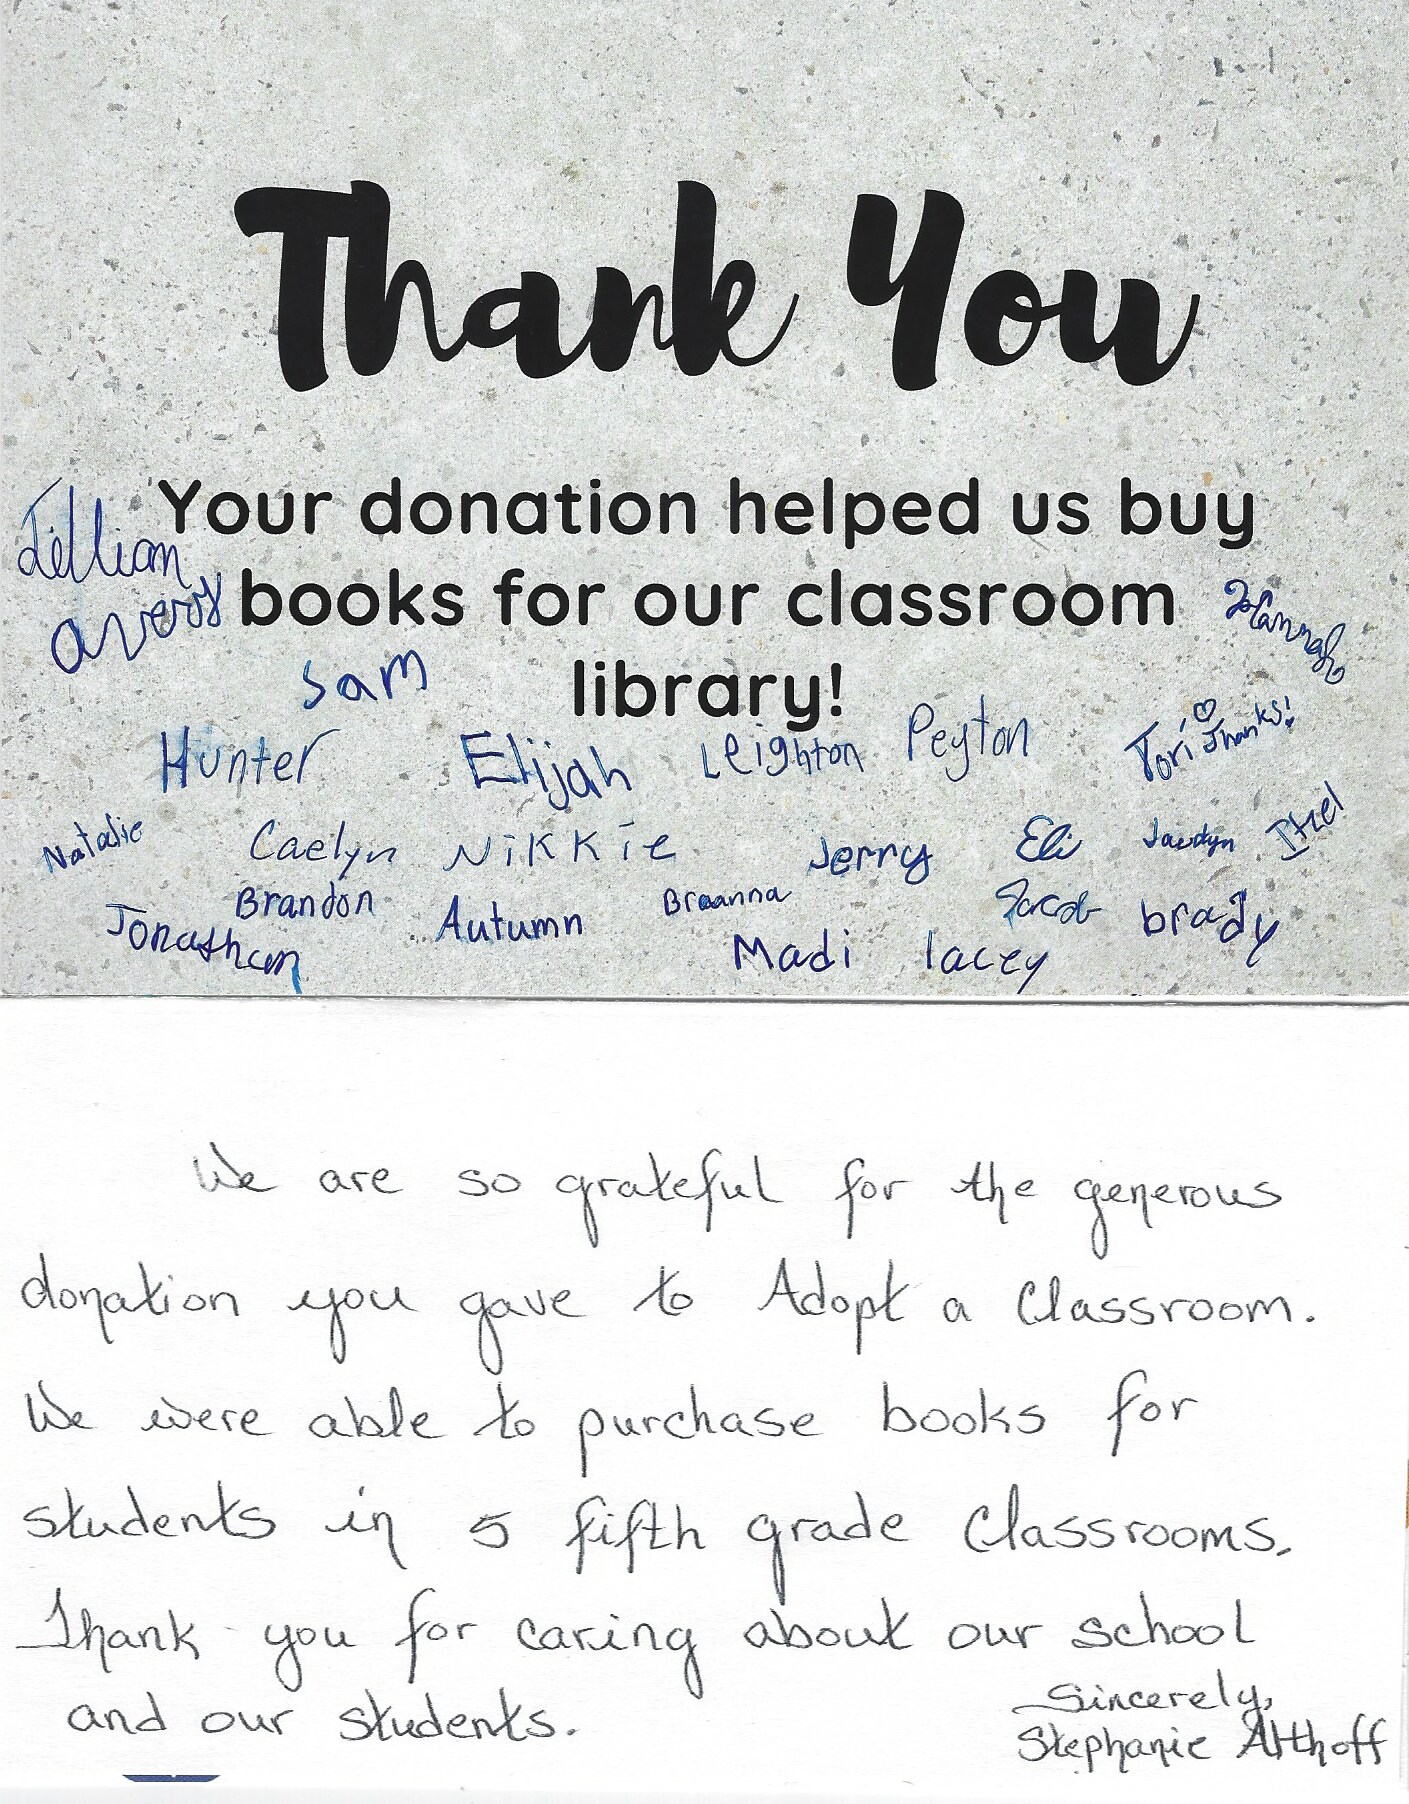 Thank You
Your donation helped us buy
books for our classroom
library!
Jillian
avery
Hannah
Sam
Hunter
Elijah
Leighton
Peyton
Tori Thanks!
Natalie
Caelyn
Nikkie
Jerry
Eli
Jaedyn
Itzel
Jonathan
Brandon
Autumn
Breanna
Jacob
brady
Madi
lacey
We are so grateful for the generous
donation you gave to Adopt a Classroom.
We were able to purchase books for
students in 5 fifth grade classrooms.
Thank you for caring about our school
and our students.
Sincerely,
Stephanie Althoff